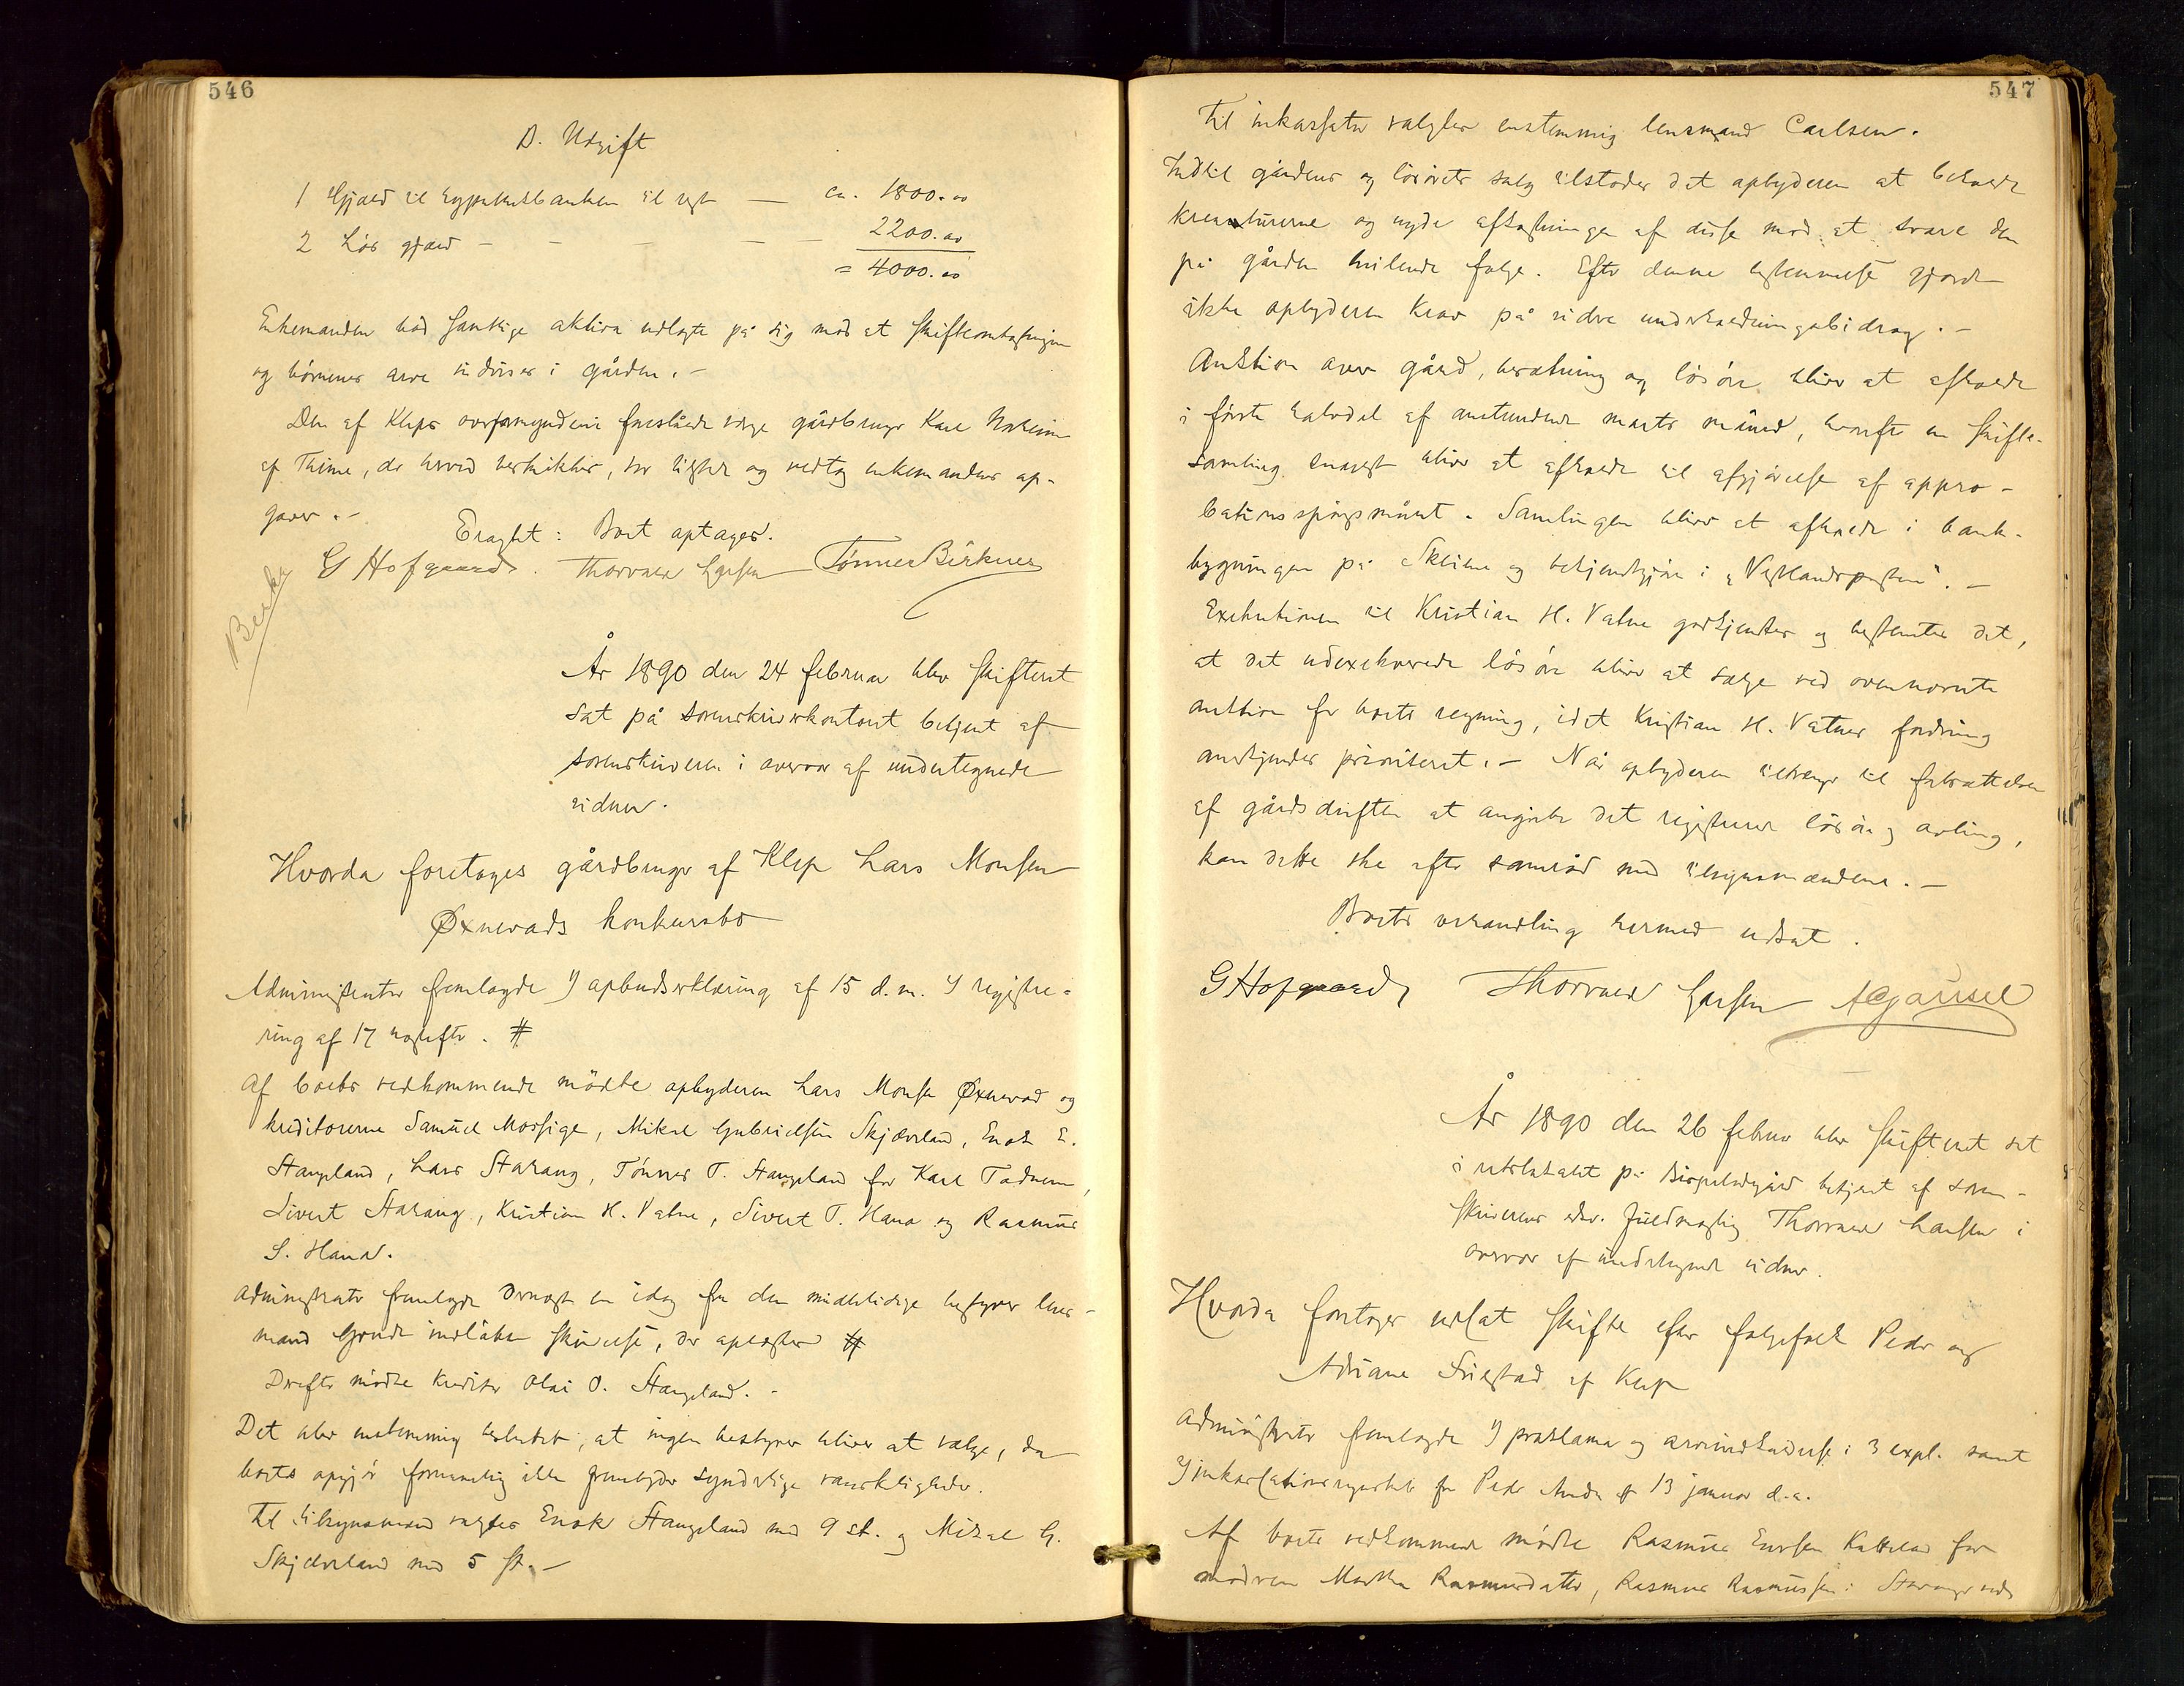 546
B. Udgift
1 Gjæld til Hypothekbanken til rest — ca. 1800.00
2 Løs gjæld - - - — 2200.00
= 4000.00
Enkemanden bad samtlige aktiva udlagte på sig mod at skifteomkostningerne
og børnenes arv indvises i gården. -
Den af Kleps overformynderi foreslåede værge gårdbruger Karl
af Thime, der herved beskikkes, var tilstede og vedtog enkemandens op-
gaver. -
Eragtet: Boet optages.
G Hofgaard. Thorvald Larsen Tønnes Birknes
År 1890 den 24 februar blev skifteret
sat på sorenskriverkontoret betjent af
sorenskriveren i overvær af undertegnede
vidner.
Hvorda foretages gårdbruger af Klep Lars Monsen
Øxnevads konkursbo
Administrator fremlagde 1) opbudserklæring af 15 d.m. 2) registre-
ring af 17 næstefter. #
Af boets vedkommende mødte opbyderen Lars Monsen Øxnevad og
kreditorerne Samuel Mossige, Mikal Gabrielsen Skjæveland, Enok E.
Stangeland, Lars Stavang, Tønnes T. Stangeland for Karl Tadnem,
Sivert Stavang, Kristian H. Vatne, Sivert T. Hana og Rasmus
S. Hana.
Administrator fremlagde dernæst en idag fra den midlertidige bestyrer lens-
mand Grude indløben skrivelse, der oplæstes #
Derefter mødte kreditor Olai O. Stangeland. -
Det blev enstemmig besluttet, at ingen bestyrer bliver at vælge, da
boets opgjør formentlig ikke frembyder synderlige vanskeligheder.
Til tilsynsmænd valgtes Enok Stangeland med 9 st. og Mikal G.
Skjæveland med 5 st. -
547
Til inkassator valgtes enstemmig lensmand Carlsen.
Indtil gårdens og løsørets salg tilstodes det opbyderen at beholde
kreaturerne og nyde afkastningen af disse mod at svare den
på gården hvilende folge. Efter denne bestemmelse gjorde
ikke opbyderen krav på videre underholdningsbidrag. -
Auktion over gård, besætning og løsøre bliver at afholde
i første halvdel af anstundende marts måned, hvorefter en skifte-
samling snarest bliver at afholde til afgjørelse af appro-
bationsspørgsmålet. Samlingen bliver at afholde i bank-
bygningen på Skeiene og bekjendtgjøre i „Vestlandsposten". -
Exekutionen til Kristian H. Vatne godkjendtes og bestemtes det,
at det udexekverede løsøre bliver at sælge ved ovennævnte
auktion for boets regning, idet Kristian H. Vatnes fordring
anerkjendes prioriteret. - Når opbyderen tiltrænger til fortsættelsen
af gårdsdriften at angribe det registrerede løsøre og avling,
kan dette ske efter samråd med tilsynsmændene. -
Boets behandling hermed udsat.
G Hofgaard, Thorvald Larsen
År 1890 den 26 februar blev skifteret sat
i retslokalet på Bispeladegård betjent af soren-
skriverens edsv. fuldmægtig Thorvald Larsen i
overvær af undertegnede vidner.
Hvorda foretages udsat skifte efter folgefolk Peder og
Adriane Friestad af Klep
Administrator fremlagde 1) proklama og arveindkaldelse i 3 expl. samt
2) inkassationsregnskab fra Peder Anda af 13 januar d.a.
Af boets vedkommende mødte Rasmus Enersen for
moderen Martha Rasmusdatter, Rasmus Rasmussen i Stavanger